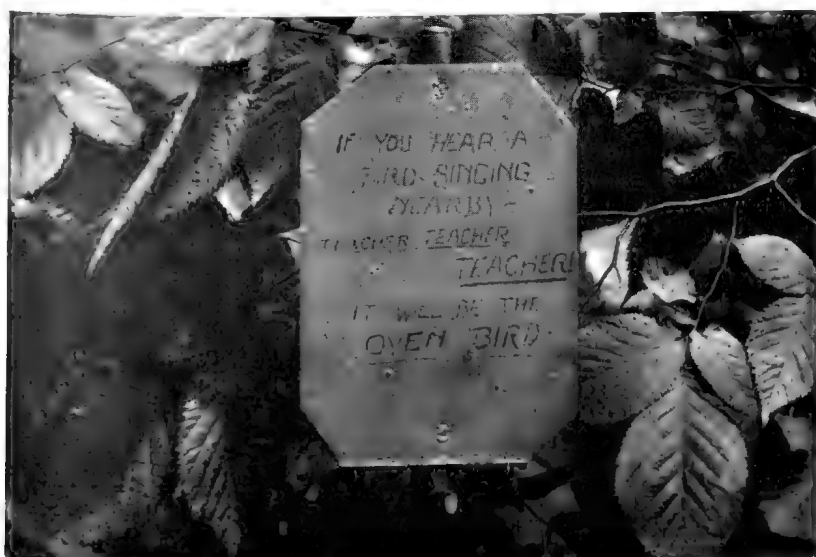 IF YOU HEAR A -
BIRD SINGING -
NEARBY -
TEACHER, TEACHER,
TEACHER!
IT WILL BE THE
OVEN BIRD